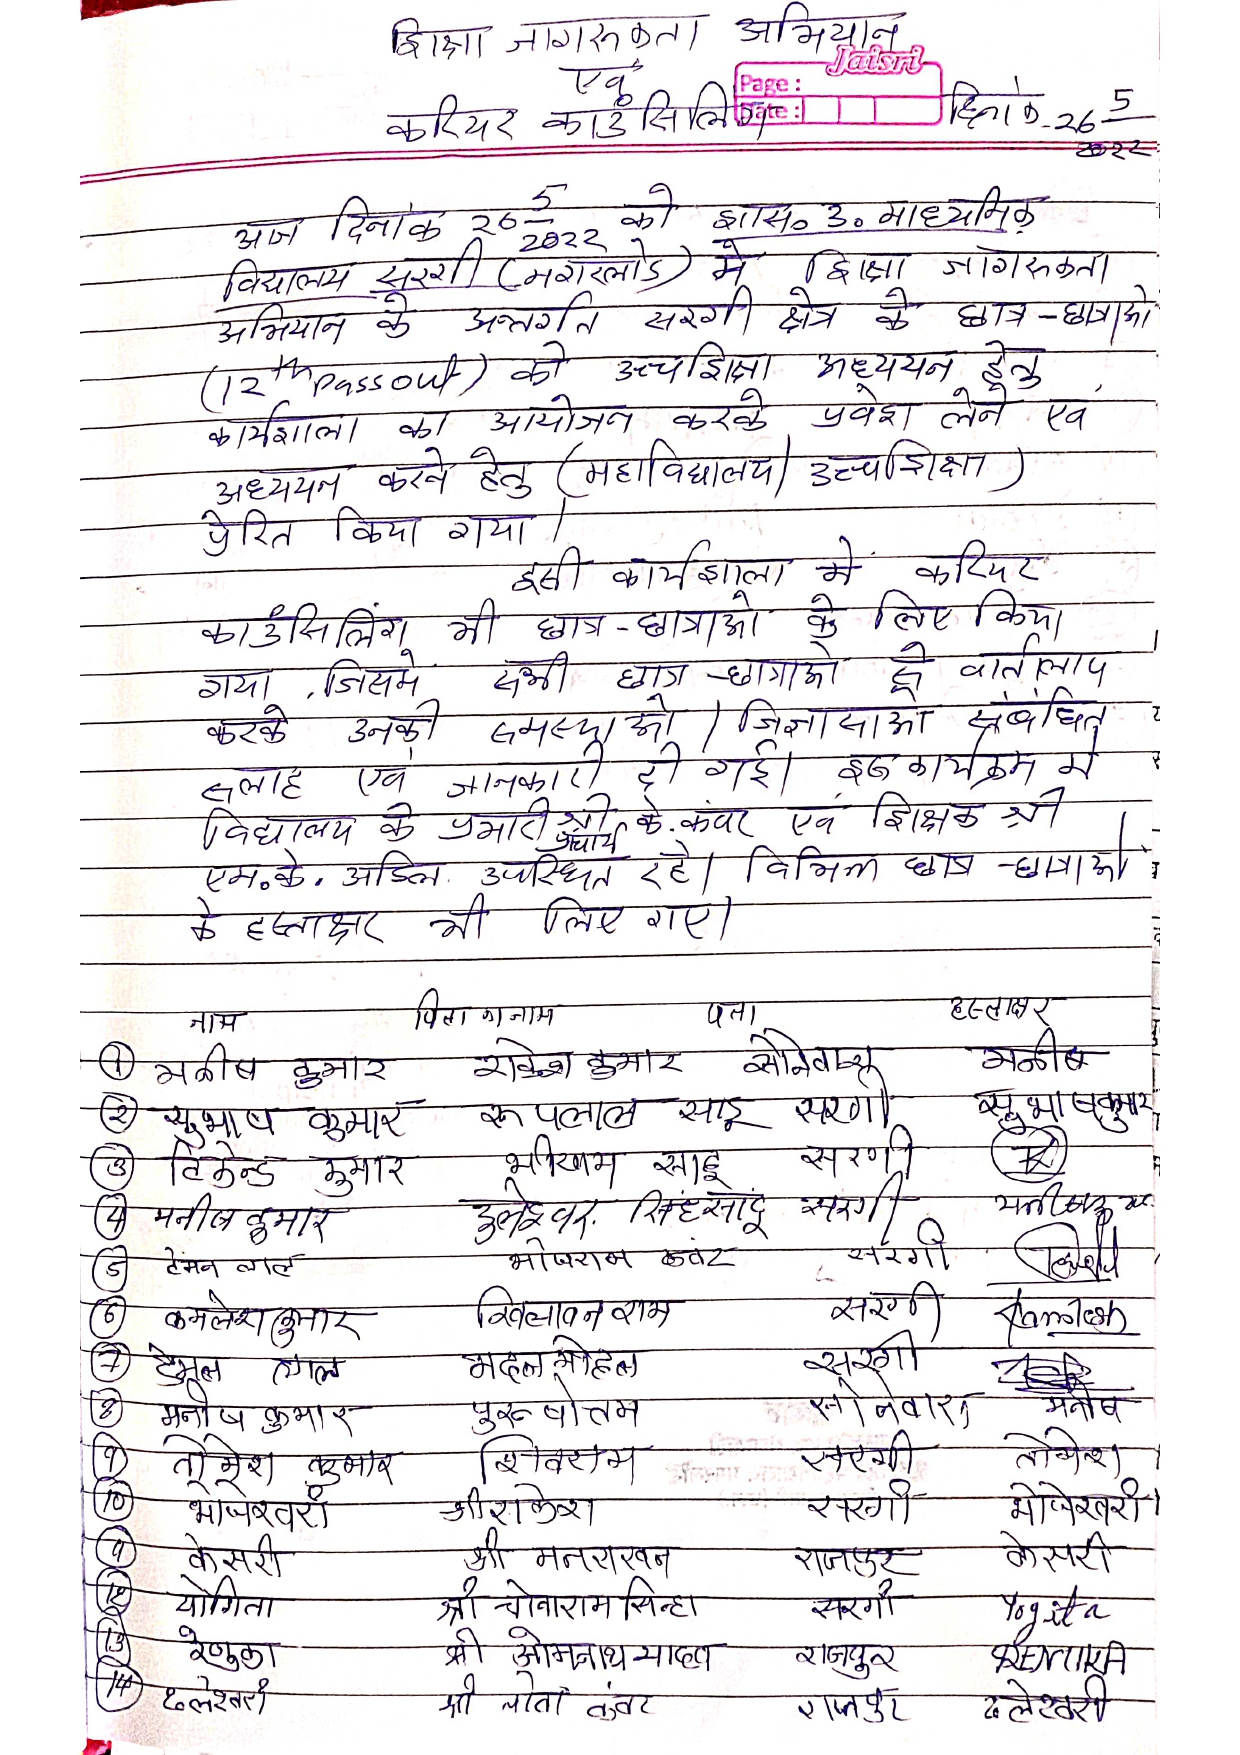 शिक्षा जागरूकता अभियान
एवं
Jaisri
Page :
Date :
करियर काउंसिलिंग दिनांक - 26 5/2022
आज दिनांक 26 5/2022 को शास. उ. माध्यमिक
विद्यालय सरगी (मगरलोड) में शिक्षा जागरूकता
अभियान के अन्तर्गत सरगी क्षेत्र के छात्र-छात्राओ
(12th Passout) को उच्चशिक्षा अध्ययन हेतु
कार्यशाला का आयोजन करके प्रवेश लेने एवं
अध्ययन करने हेतु (महाविद्यालय/ उच्चशिक्षा)
प्रेरित किया गया।
इसी कार्यशाला में करियर
काउंसिलिंग भी छात्र-छात्राओ के लिए किया
गया, जिसमे सभी छात्र-छात्राओ से वार्तालाप
करके उनकी समस्याओ / जिज्ञासाओ संबंधित
सलाह एवं जानकारी दी गई। इस कार्यक्रम में
विद्यालय के प्रभारी प्राचार्य श्री के. कंवर एवं शिक्षक श्री
एम.के. अडिल उपस्थित रहे। विभिन्न छात्र-छात्राओ
के हस्ताक्षर भी लिए गए।
नाम पिता का नाम पता हस्ताक्षर
1 मनीष कुमार राकेश कुमार सोनेवारा मनीष
2 सुभाष कुमार रूपलाल साहू सरगी सुभाषकुमार
3 टिकेन्द्र कुमार भीखम साहू सरगी
4 मनीष कुमार डुलेश्वर सिंह साहू सरगी मनीषकुमार
5 टेमन लाल भोजराम कवंर सरगी
6 कमलेश कुमार खिलावन राम सरगी Kamlesh
7 डेमुल लाल मदन मोहन सरगी
8 मनीष कुमार पुरूषोतम सोनेवारा मनीष
9 तोमेश कुमार शिवराम सरगी तोमेश
10 भोजेश्वरी श्री राकेश सरगी भोजेश्वरी
11 केसरी श्री मनराखन राजपुर केसरी
12 योगिता श्री चोवाराम सिन्हा सरगी Yogita
13 रेणुका श्री ओमनाथ यादव राजपुर RENUKA
14 ढलेश्वरी श्री लोता कंवर राजपुर ढलेश्वरी